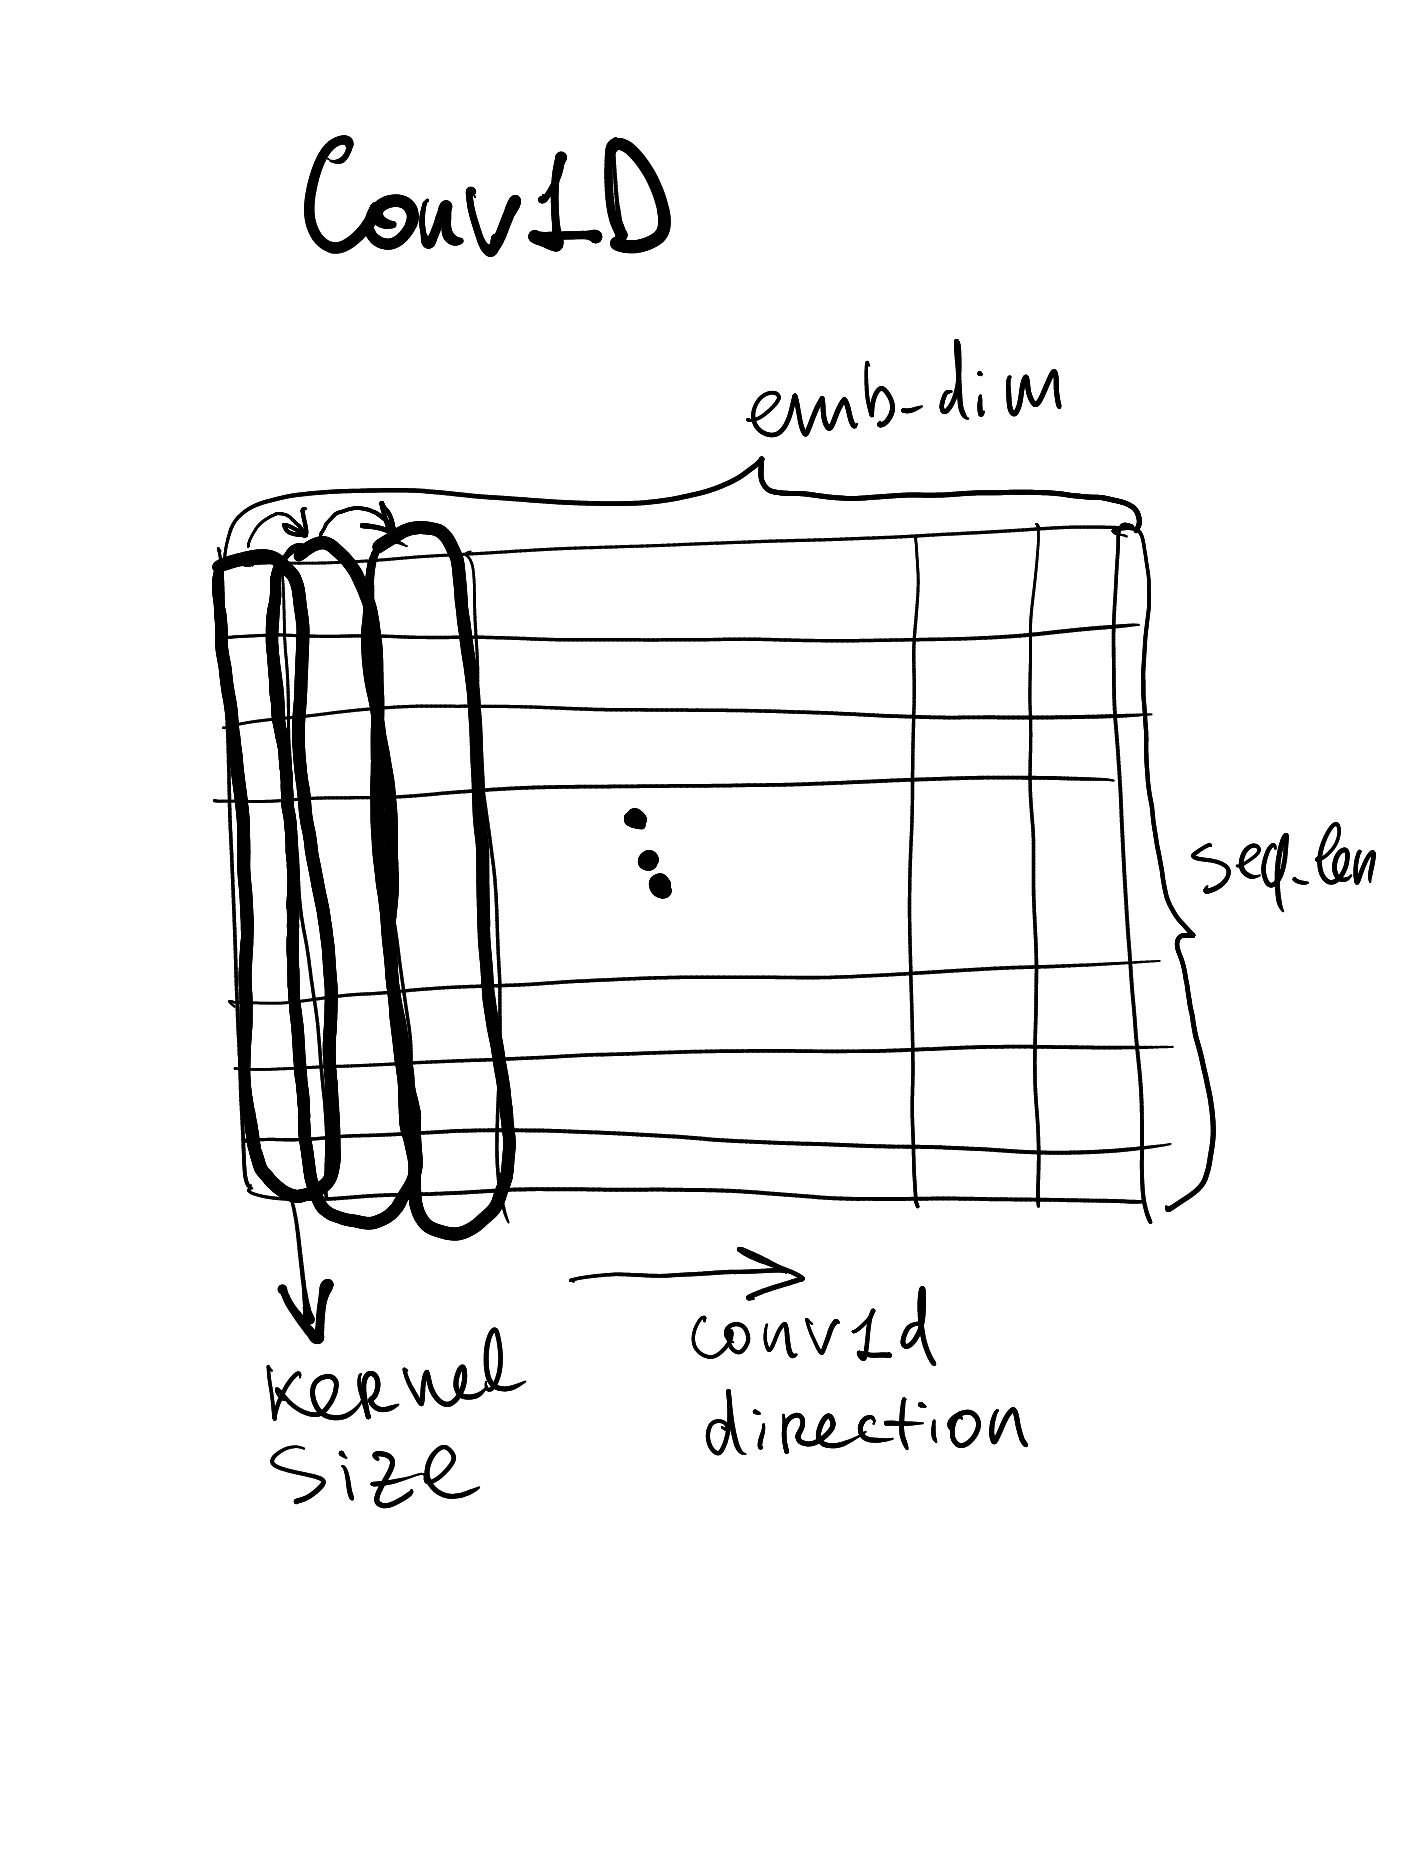 Conv1D
emb-dim
seq-len
kernel
size
conv1d
direction